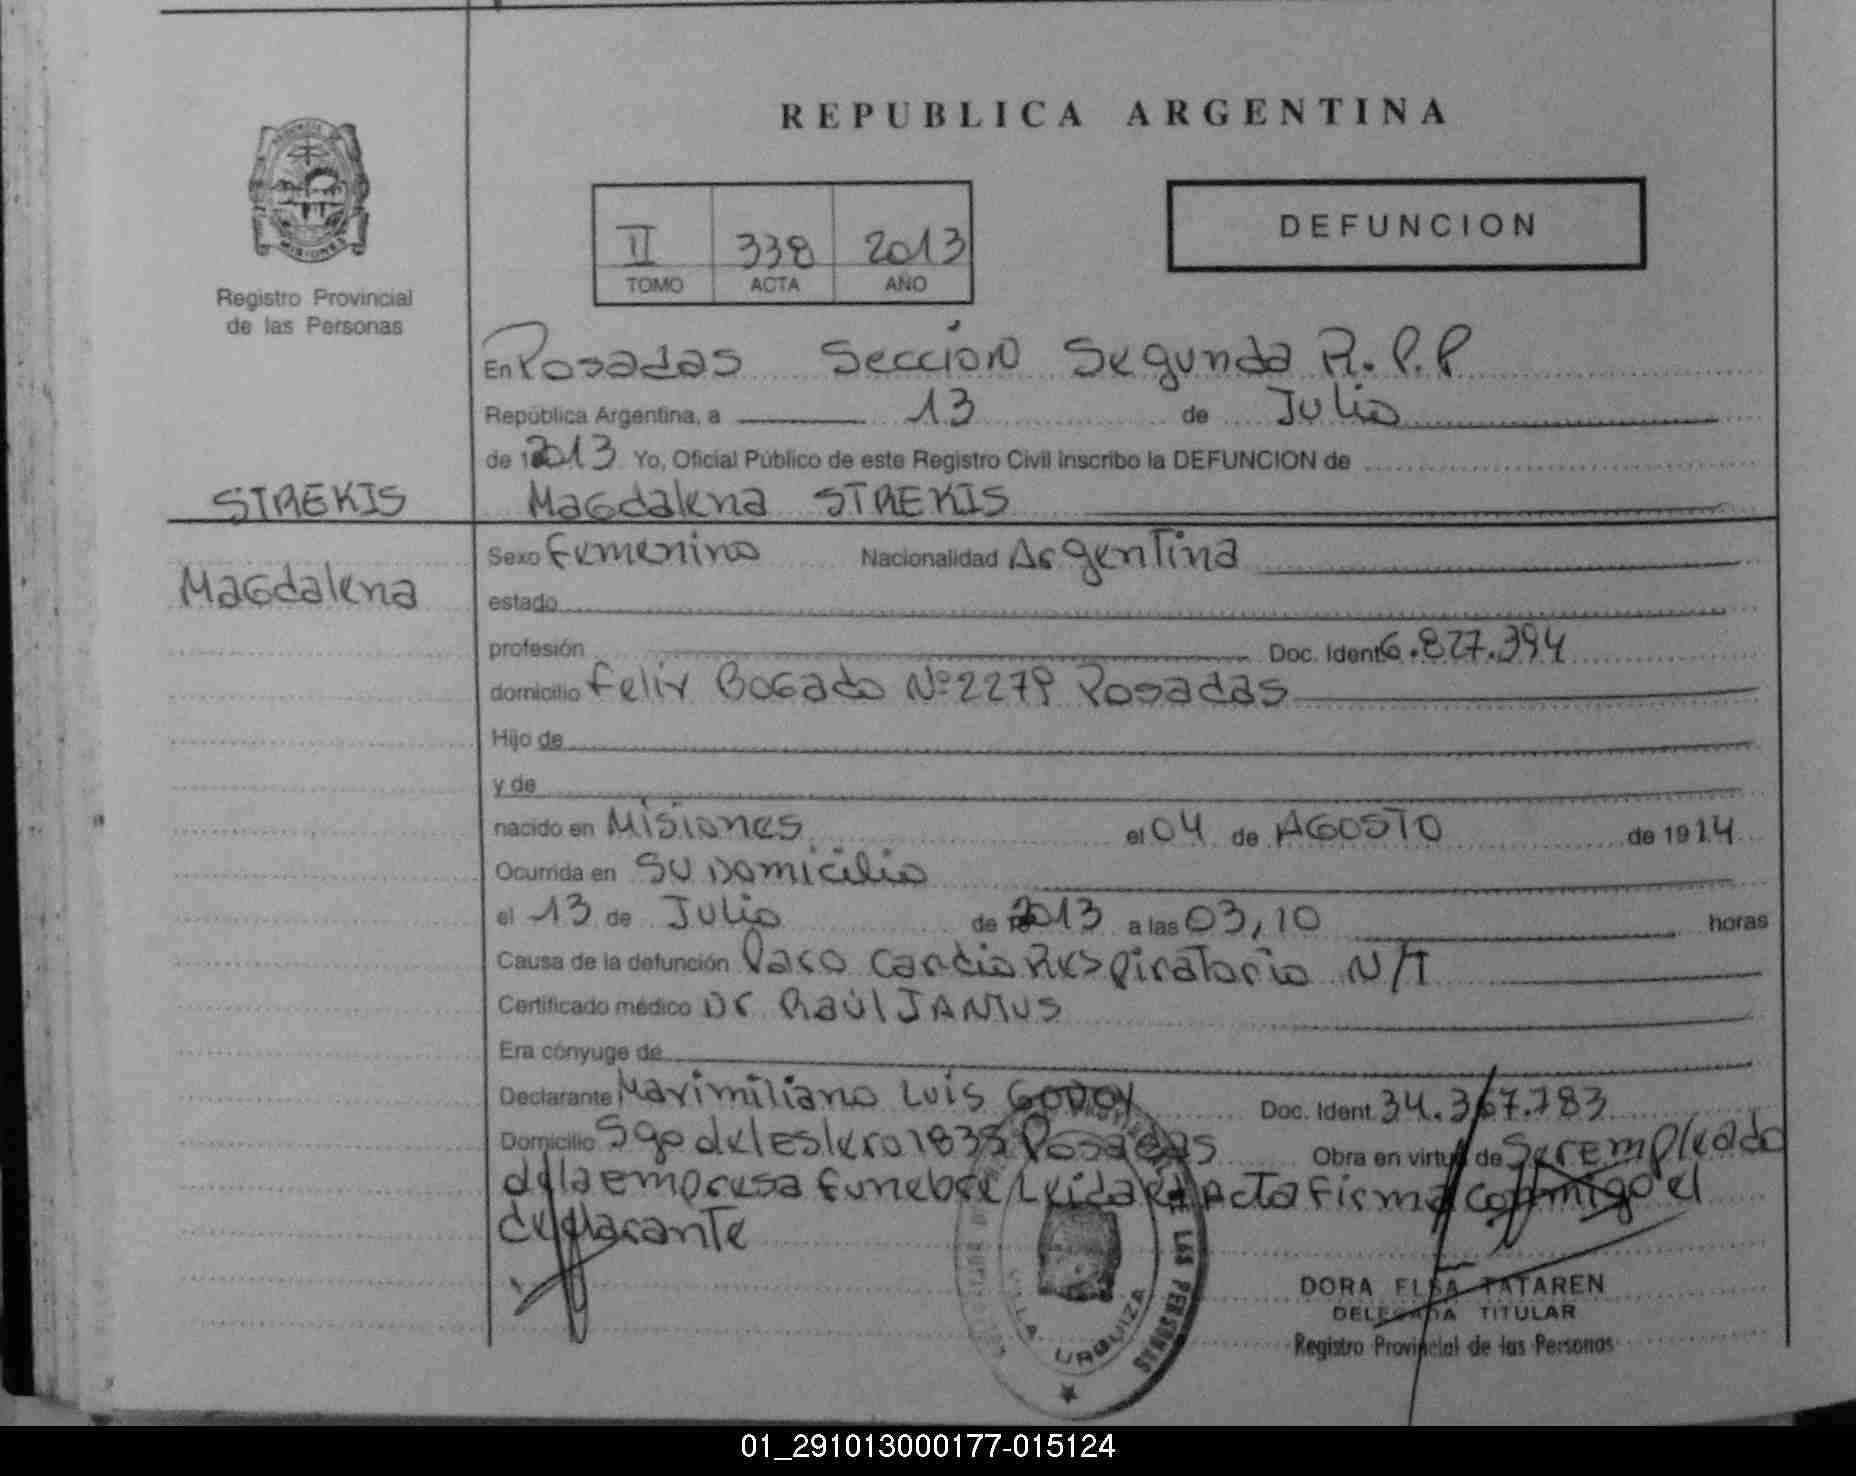 REPUBLICA ARGENTINA
MISIONES
Registro Provincial
de las Personas
II 338 2013
TOMO ACTA AÑO
DEFUNCION
En Posadas Sección Segunda R.P.P
República Argentina, a 13 de Julio
de 2013 Yo, Oficial Público de este Registro Civil inscribo la DEFUNCION de
STREKIS
Magdalena STREKIS
Magdalena
Sexo femenino Nacionalidad Argentina
estado
profesión Doc. Ident 6.827.394
domicilio Felix Bogado Nº 2279 Posadas
Hijo de
y de
nacido en Misiones el 04 de AGOSTO de 1914
Ocurrida en Su Domicilio
el 13 de Julio de 2013 a las 03,10 horas
Causa de la defunción Paro CardioRespiratorio N/T
Certificado médico Dr Raúl JANTUS
Era cónyuge de
Declarante Maximiliano Luis GODOY Doc. Ident. 34.367.783
Domicilio Sgo del Estero 1835 Posadas Obra en virtud de Ser empleado
de la empresa funebre/Leida el Acta firma conmigo el
declarante
LAS PERSONAS
VILLA URQUIZA
DORA ELSA TATAREN
DELEGADA TITULAR
Registro Provincial de las Personas
01_291013000177-015124